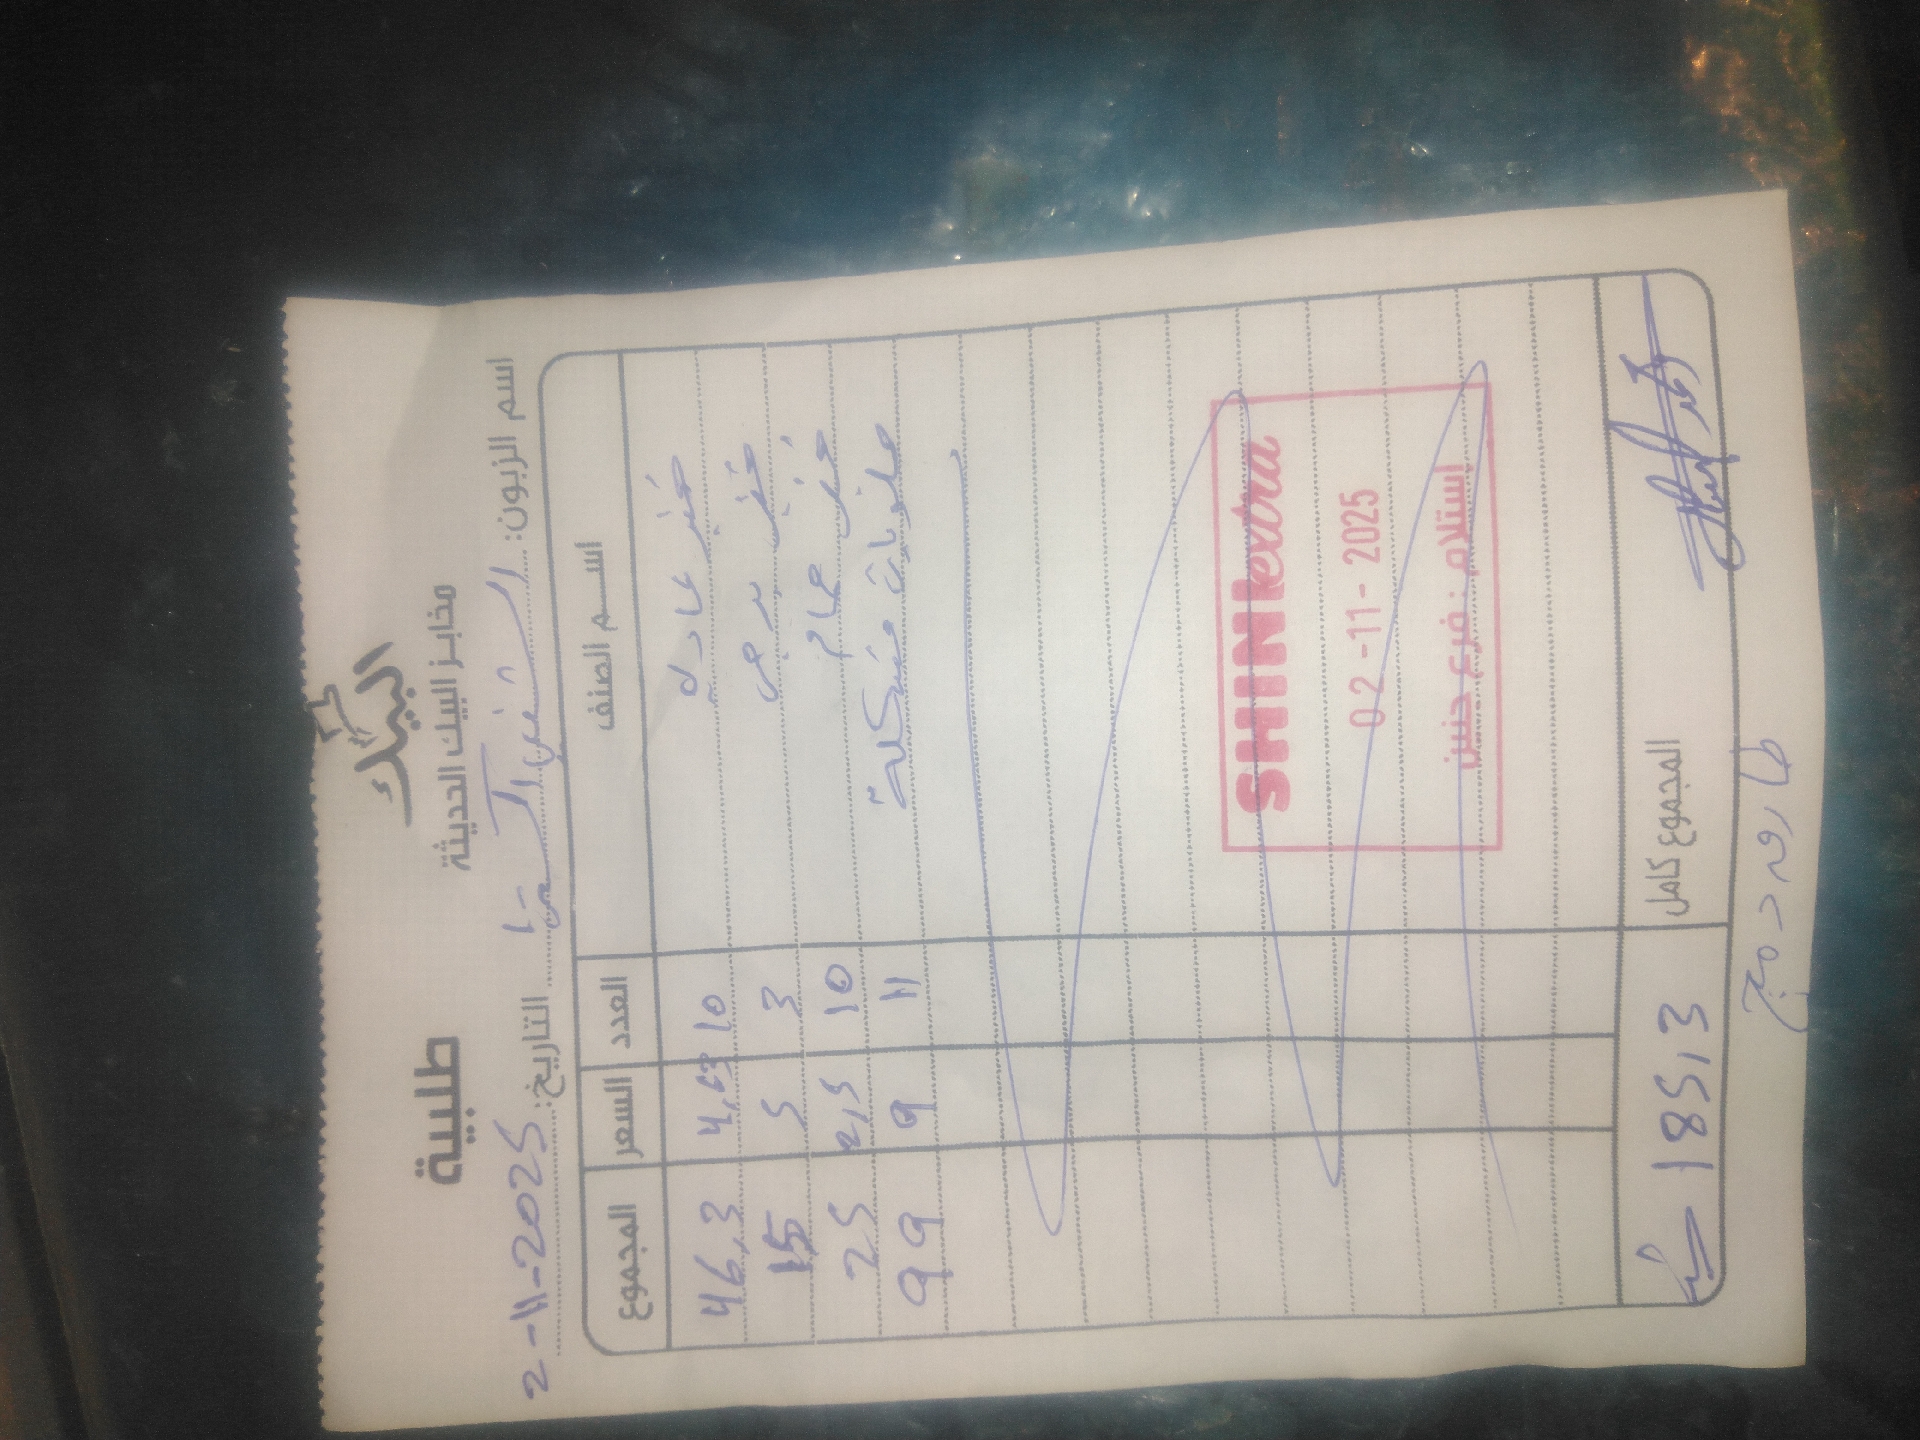 البيك
مخابز البيك الحديثة
طلبية
اسم الزبون: الشني اكسترا التاريخ: 2-11-2025
اسم الصنف العدد السعر المجموع
خبز عادي 10 4,63 46,3
خبز برجر 3 5 15
خبز حمام 10 2,5 25
حلويات مشكلة 11 9 99
SHINIextra
02-11-2025
استلام : فرع جنين
المجموع كامل 185,3